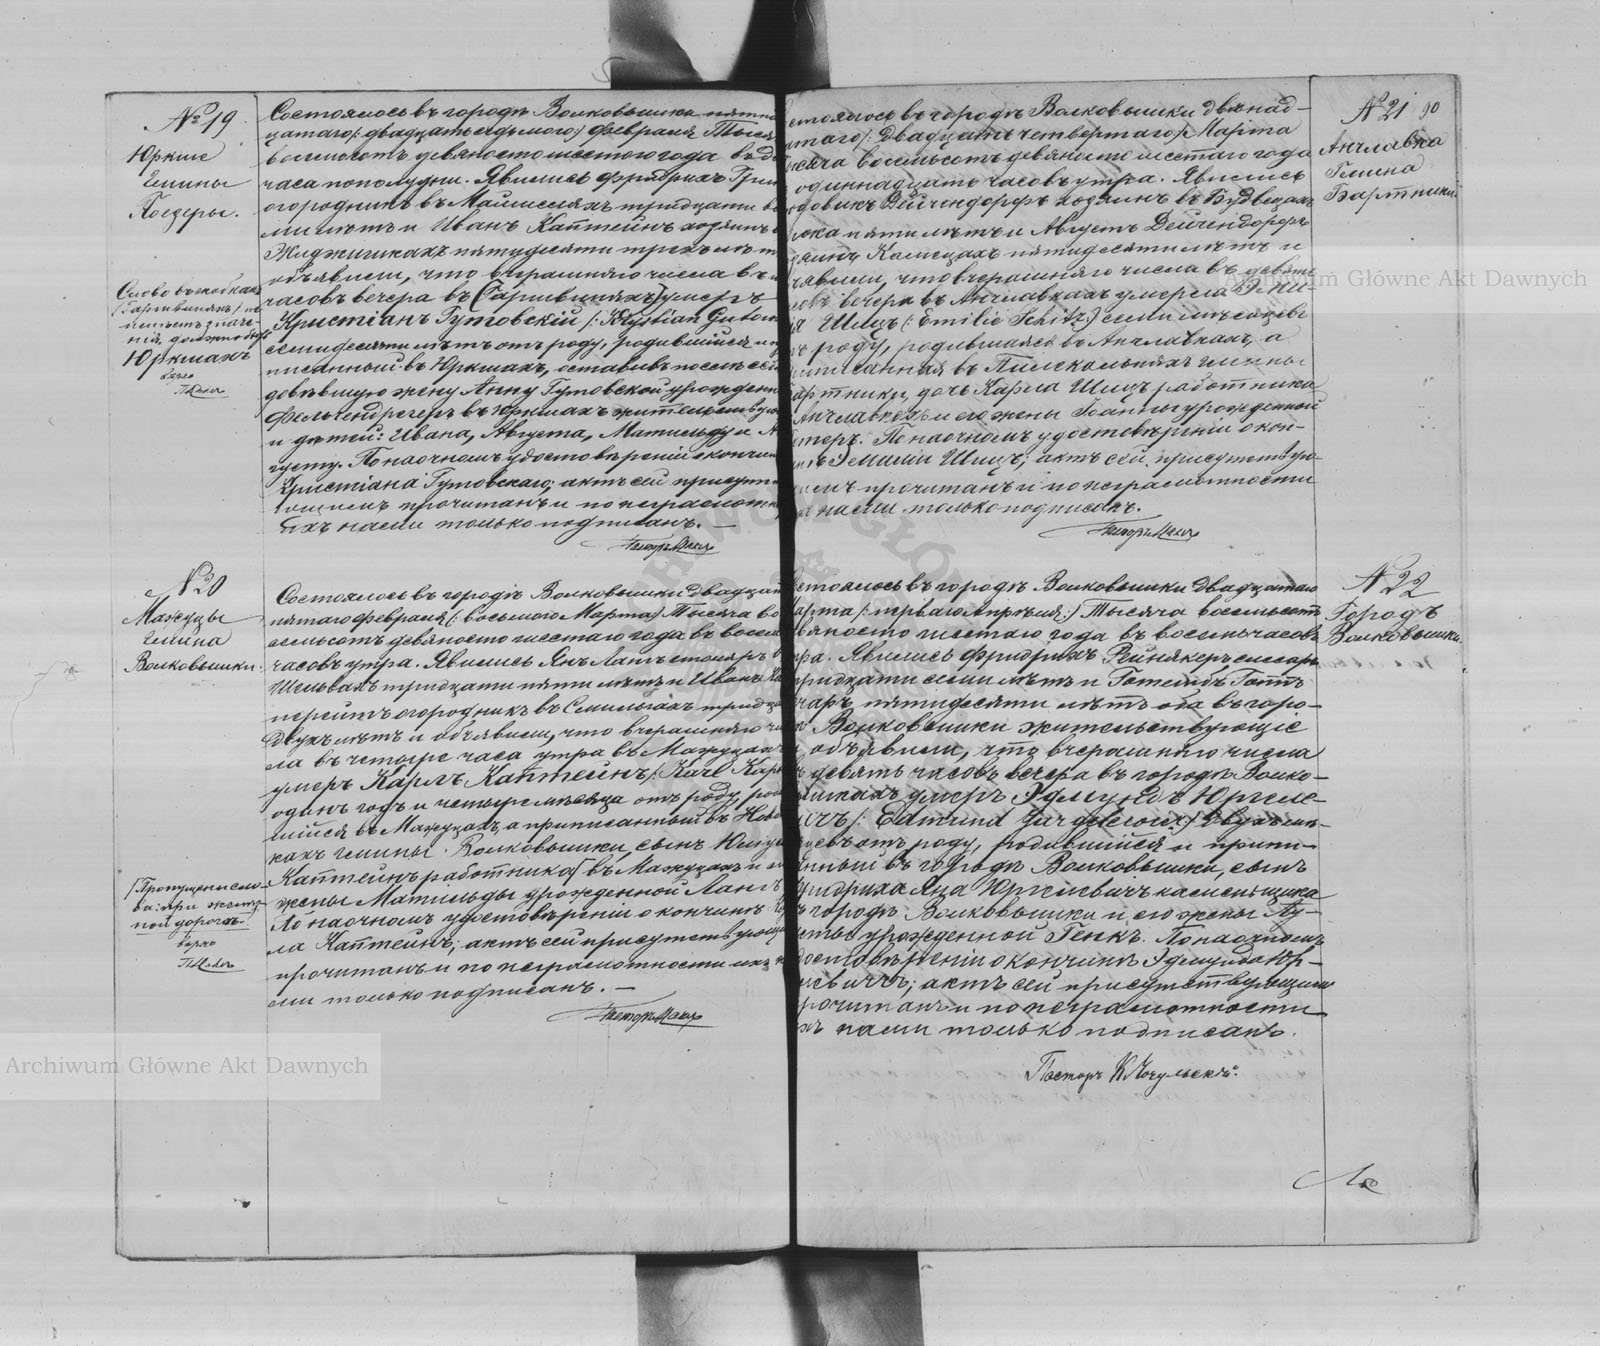 № 19
Юркше
Гмины
Поезеры.
Состоялось въ городѣ Волковышки пятна
цатаго /: двадцать седьмого :/ февраля Тыся
восемьсотъ девяносто шестого года въ д
часа по полудни. Явились Фридрихъ
огородникъ въ тридцати во
ми лѣтъ и Иванъ Каптейнъ хозяинъ
пятидесяти трехъ лѣт
объявили, что вчерашняго числа въ
часовъ вечера въ [Гаршвиняхъ] умеръ
Кристіанъ Гутовскій /: Krystian Gutow
семидесяти лѣтъ отъ роду, родившійся и
писанный въ Юркшахъ, оставивъ послѣ себ
довѣвшую жену Анну Гутовской урожден
въ Юркшахъ жительствую
и дѣтей: Ивана, Августа, Матильду и А
густу. По наочномъ удостовѣреніи о кончин
Христіана Гутовскаго; актъ сей присутс
ющимъ прочитанъ и по неграмотно
ихъ нами только подписанъ. —
Слово въ скобкахъ
/Гаршвиняхъ/ не
имѣетъ знач-
нія, должно быть
Юркшахъ
№ 20
Мажуцы
Гмина
Волковышки.
Состоялось въ городѣ Волковышки двадцат
пятаго февраля /: восьмого Марта :/ Тысяча во
семьсотъ девяносто шестого года въ восемь
часовъ утра. Явились Янъ Лангъ столяръ
тридцати пяти лѣтъ и Иванъ
огородникъ въ тридца
двухъ лѣтъ и объявили, что вчерашняго чи
ла въ четыре часа утра въ Мажуцахъ
умеръ Карлъ Каптейнъ /: Karl Kap
одинъ годъ и четыре мѣсяца отъ роду, род
шійся въ Мажуцахъ, а приписанный въ Ново
кахъ гмины Волковышки, сынъ
Каптейнъ работника [ въ Мажуцахъ и
жены Матильды урожденной Лангъ
По наочномъ удостовѣреніи о кончинѣ Ка
ла Каптейнъ; актъ сей присутствующи
прочитанъ и по неграмотности ихъ н
ами только подписанъ. —
[Пропущены сло-
ва: при желѣз-
ной дорогѣ.
№ 21 90
Анчлавка
Гмина
Бартники
стоялось въ городѣ Волковышки двѣнад-
цатаго /: Двадцать четвертаго :/ Марта
сяча восемьсотъ девяносто шестаго года
одиннадцать часовъ утра. Явились
довикъ Дейчендорфъ хозяинъ въ Будвецахъ
рока пяти лѣтъ и Августъ Дейчендорфъ
пятидесяти лѣтъ и
явили, что вчерашняго числа въ девять
совъ вечера въ Анчлавкахъ умерла Эми-
ія Шицъ /: Emilie Schitz :/ семи мѣсяцевъ
ъ роду, родившаяся въ Анчлавкахъ, а
приписанная въ Пилекальняхъ гмины
артники, дочь Карла Шицъ работника
Анчлавкахъ и его жены Іоанны урожденной
По наочномъ удостовѣреніи о кон-
инѣ Эмиліи Шицъ; актъ сей присутству-
щимъ прочитанъ и по неграмотности
нами только подписанъ.
№ 22
Городъ
Волковышки.
стоялось въ городѣ Волковышки двадцатаго
арта /: перваго Апрѣля :/ Тысяча восемьсотъ
вяносто шестаго года въ восемь часовъ
тра. Явились Фридрихъ слесарь
тридцати семи лѣтъ и Готлибъ
пятидесяти лѣтъ оба въ горо-
ѣ Волковышки жительствующіе
объявили, что вчерашняго числа
ъ девять часовъ вечера въ городѣ Волко-
вышкахъ умеръ Эдмундъ Юргеле-
вичъ /: Edmund Jurgelewicz :/ двухъ мѣ-
яцевъ отъ роду, родившійся и припи-
анный въ городѣ Волковышки, сынъ
Фридриха Яна Юргелевичъ каменьщика
ъ городѣ Волковышки и его жены Лу-
урожденной Генкъ. По наочномъ
достовѣреніи о кончинѣ Эдмунда Юр-
елевичъ; актъ сей присутствующимъ
рочитанъ и по неграмотности
хъ нами только подписанъ.
Пасторъ
Archiwum Główne Akt Dawnych
Archiwum Główne Akt Dawnych